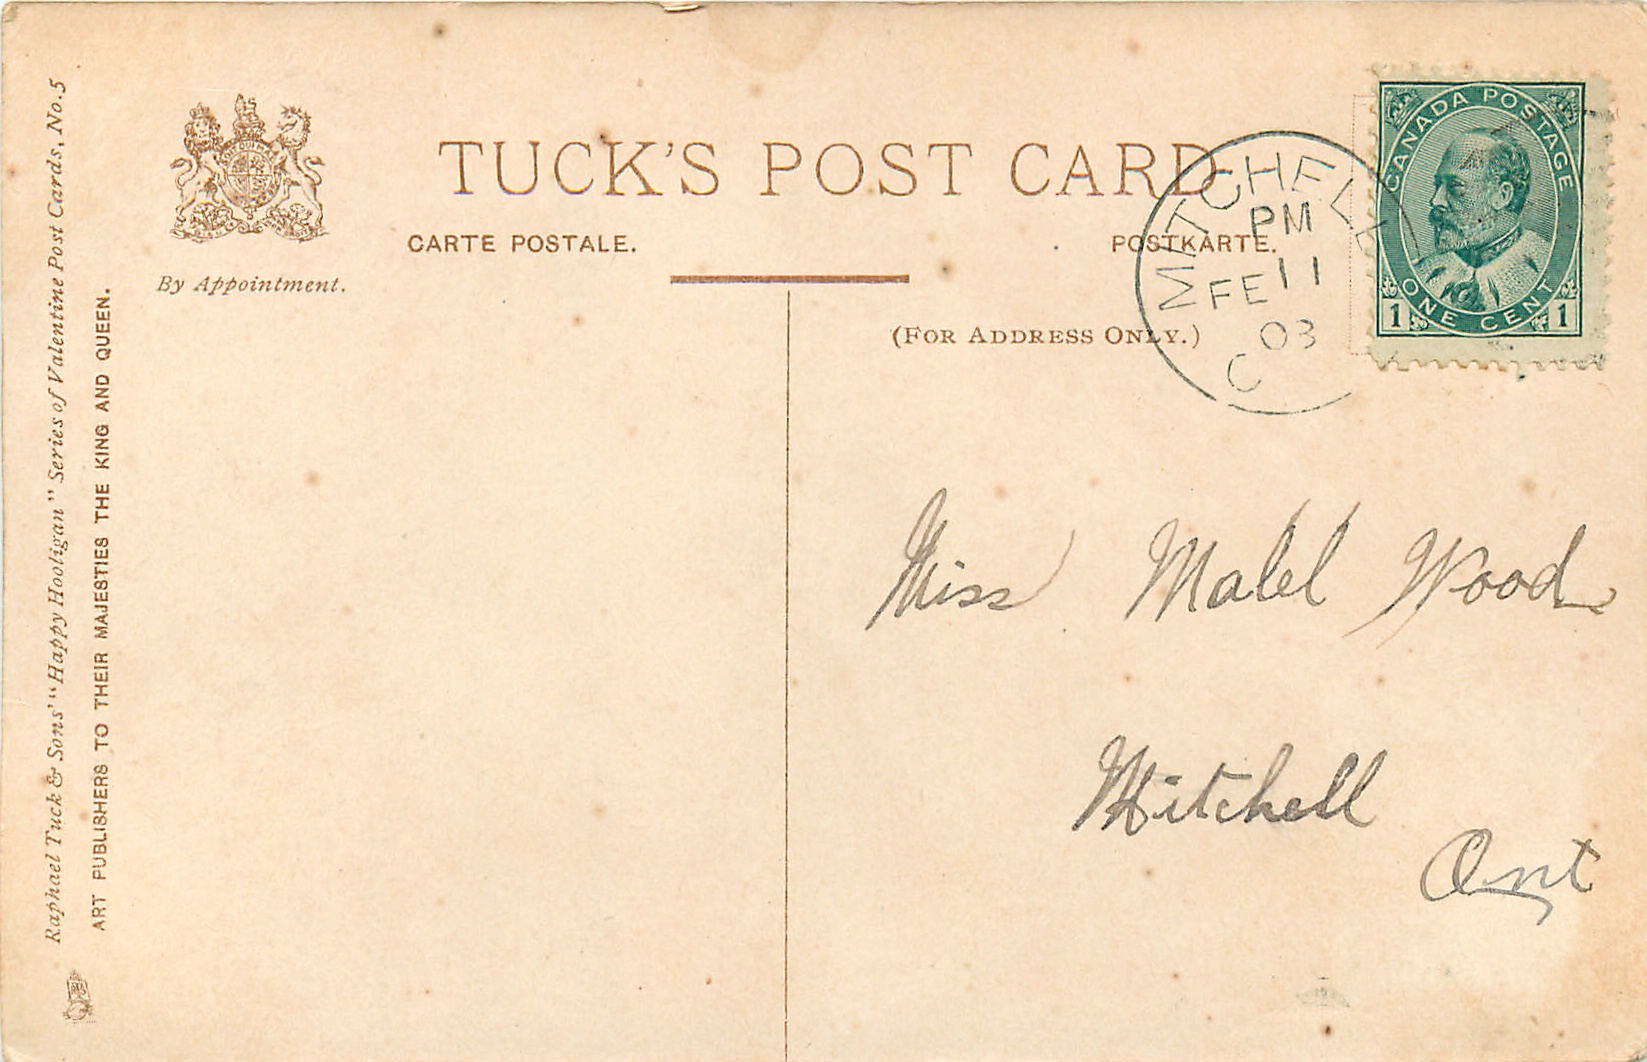 Raphael Tuck & Sons' "Happy Hooligan" Series of Valentine Post Cards, No. 5
ART PUBLISHERS TO THEIR MAJESTIES THE KING AND QUEEN.
By Appointment.
TUCK'S POST CARD
CARTE POSTALE.
POSTKARTE.
(FOR ADDRESS ONLY.)
MITCHELL
PM
FE 11
03
CANADA POSTAGE
ONE CENT
1 1
Miss Mabel Wood
Mitchell
Ont